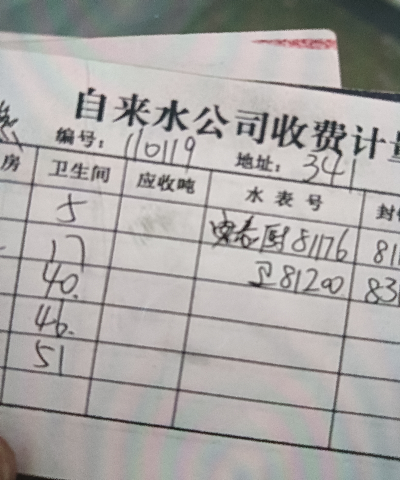 自来水公司收费计
编号: 110119 地址: 341
房 卫生间 应收吨 水表号 封
5 厨81176 81
17 卫81200 83
40.
46.
51